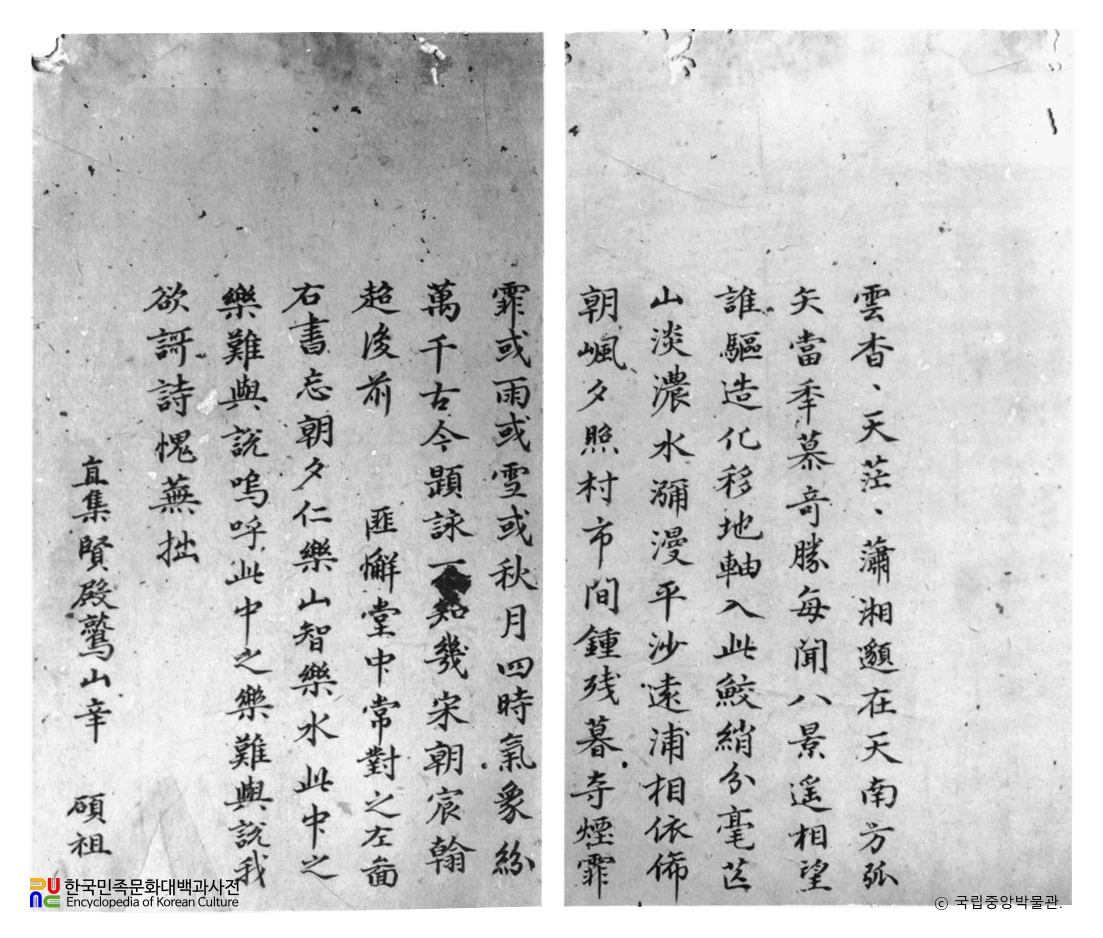 雲杳、天茫、瀟湘邈在天南方弧
矢當年慕奇勝每聞八景遥相望
誰驅造化移地軸入此鮫綃分毫芒
山淡濃水瀰漫平沙遠浦相依俙
朝嵐夕照村市間鍾殘暮寺煙霏
霏或雨或雪或秋月四時氣象紛
萬千古今題詠知幾宋朝宸翰
超後前 匪懈堂中常對之左圖
右書忘朝夕仁樂山智樂水此中之
樂難與説嗚呼此中之樂難與説我
欲謌詩愧蕪拙
直集賢殿鷲山辛 碩祖
한국민족문화대백과사전
Encyclopedia of Korean Culture
ⓒ 국립중앙박물관.